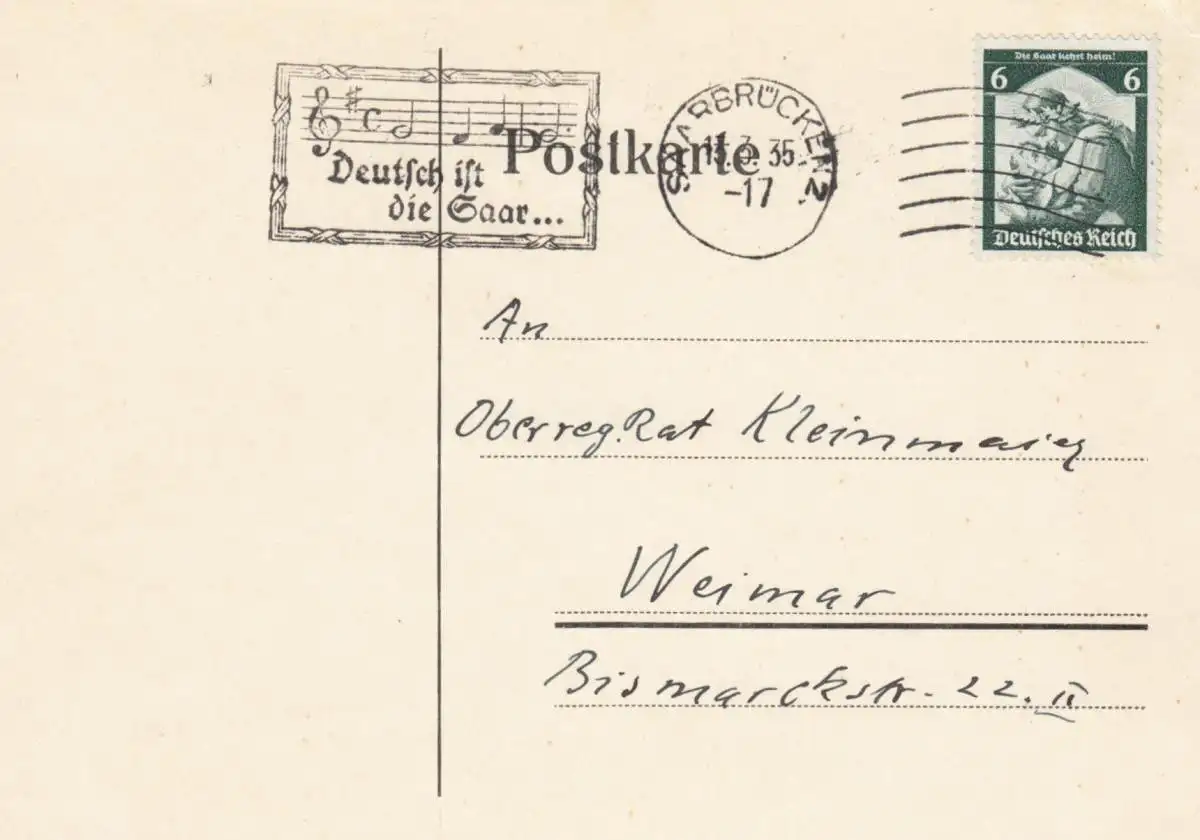 Die Saar kehrt heim!
6 6
Deutsches Reich
SAARBRÜCKEN 2
13.3.35
-17
Deutsch ist
die Saar...
Postkarte
An
Oberreg.Rat Kleinmaier
Weimar
Bismarckstr. 22. II